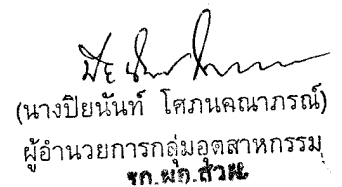 (นางปิยนันท์ โศภนคณาภรณ์)
ผู้อำนวยการกลุ่มอุตสาหกรรม
รก.ผอ.สวผ.